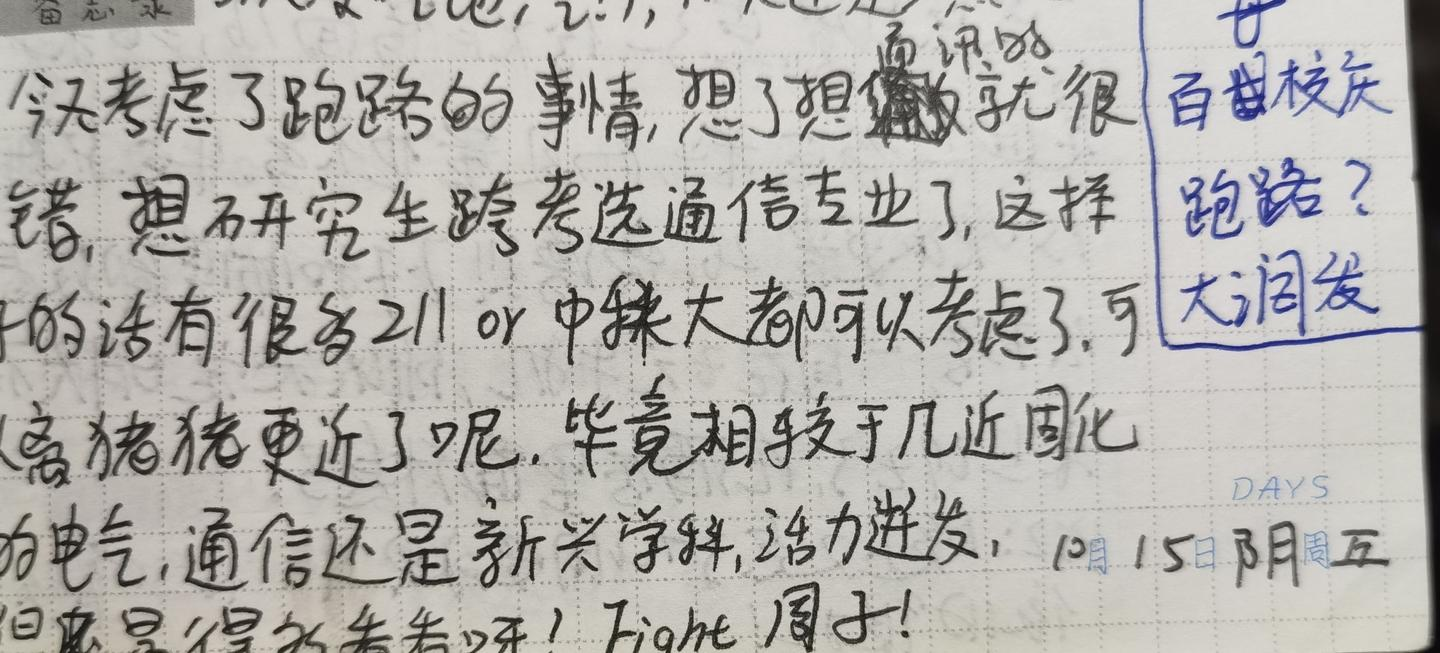 备忘录
今天考虑了跑路的事情,想了想
就很
错,想研究生跨考选通信专业了,这样
的话有很多211 or 中科大都可以考虑了.可
离猪猪更近了呢.毕竟相较于几近固化
的电气,通信还是新兴学科,活力迸发,
Fight 周子!
百年校庆
跑路?
大润发
DAYS
10月15日 阴 周五